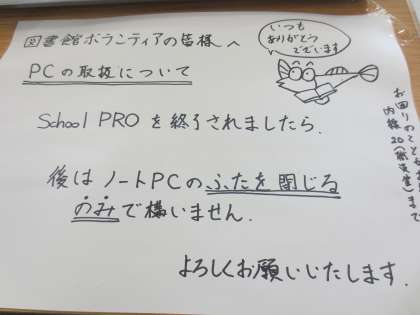 図書館ボランティアの皆様へ
いつも
ありがとう
ございます
PCの取扱について
School PROを終了されましたら、
後はノートPCのふたを閉じる
のみで構いません。
よろしくお願いいたします。
お困りのことあ
内線20(職員室)まで